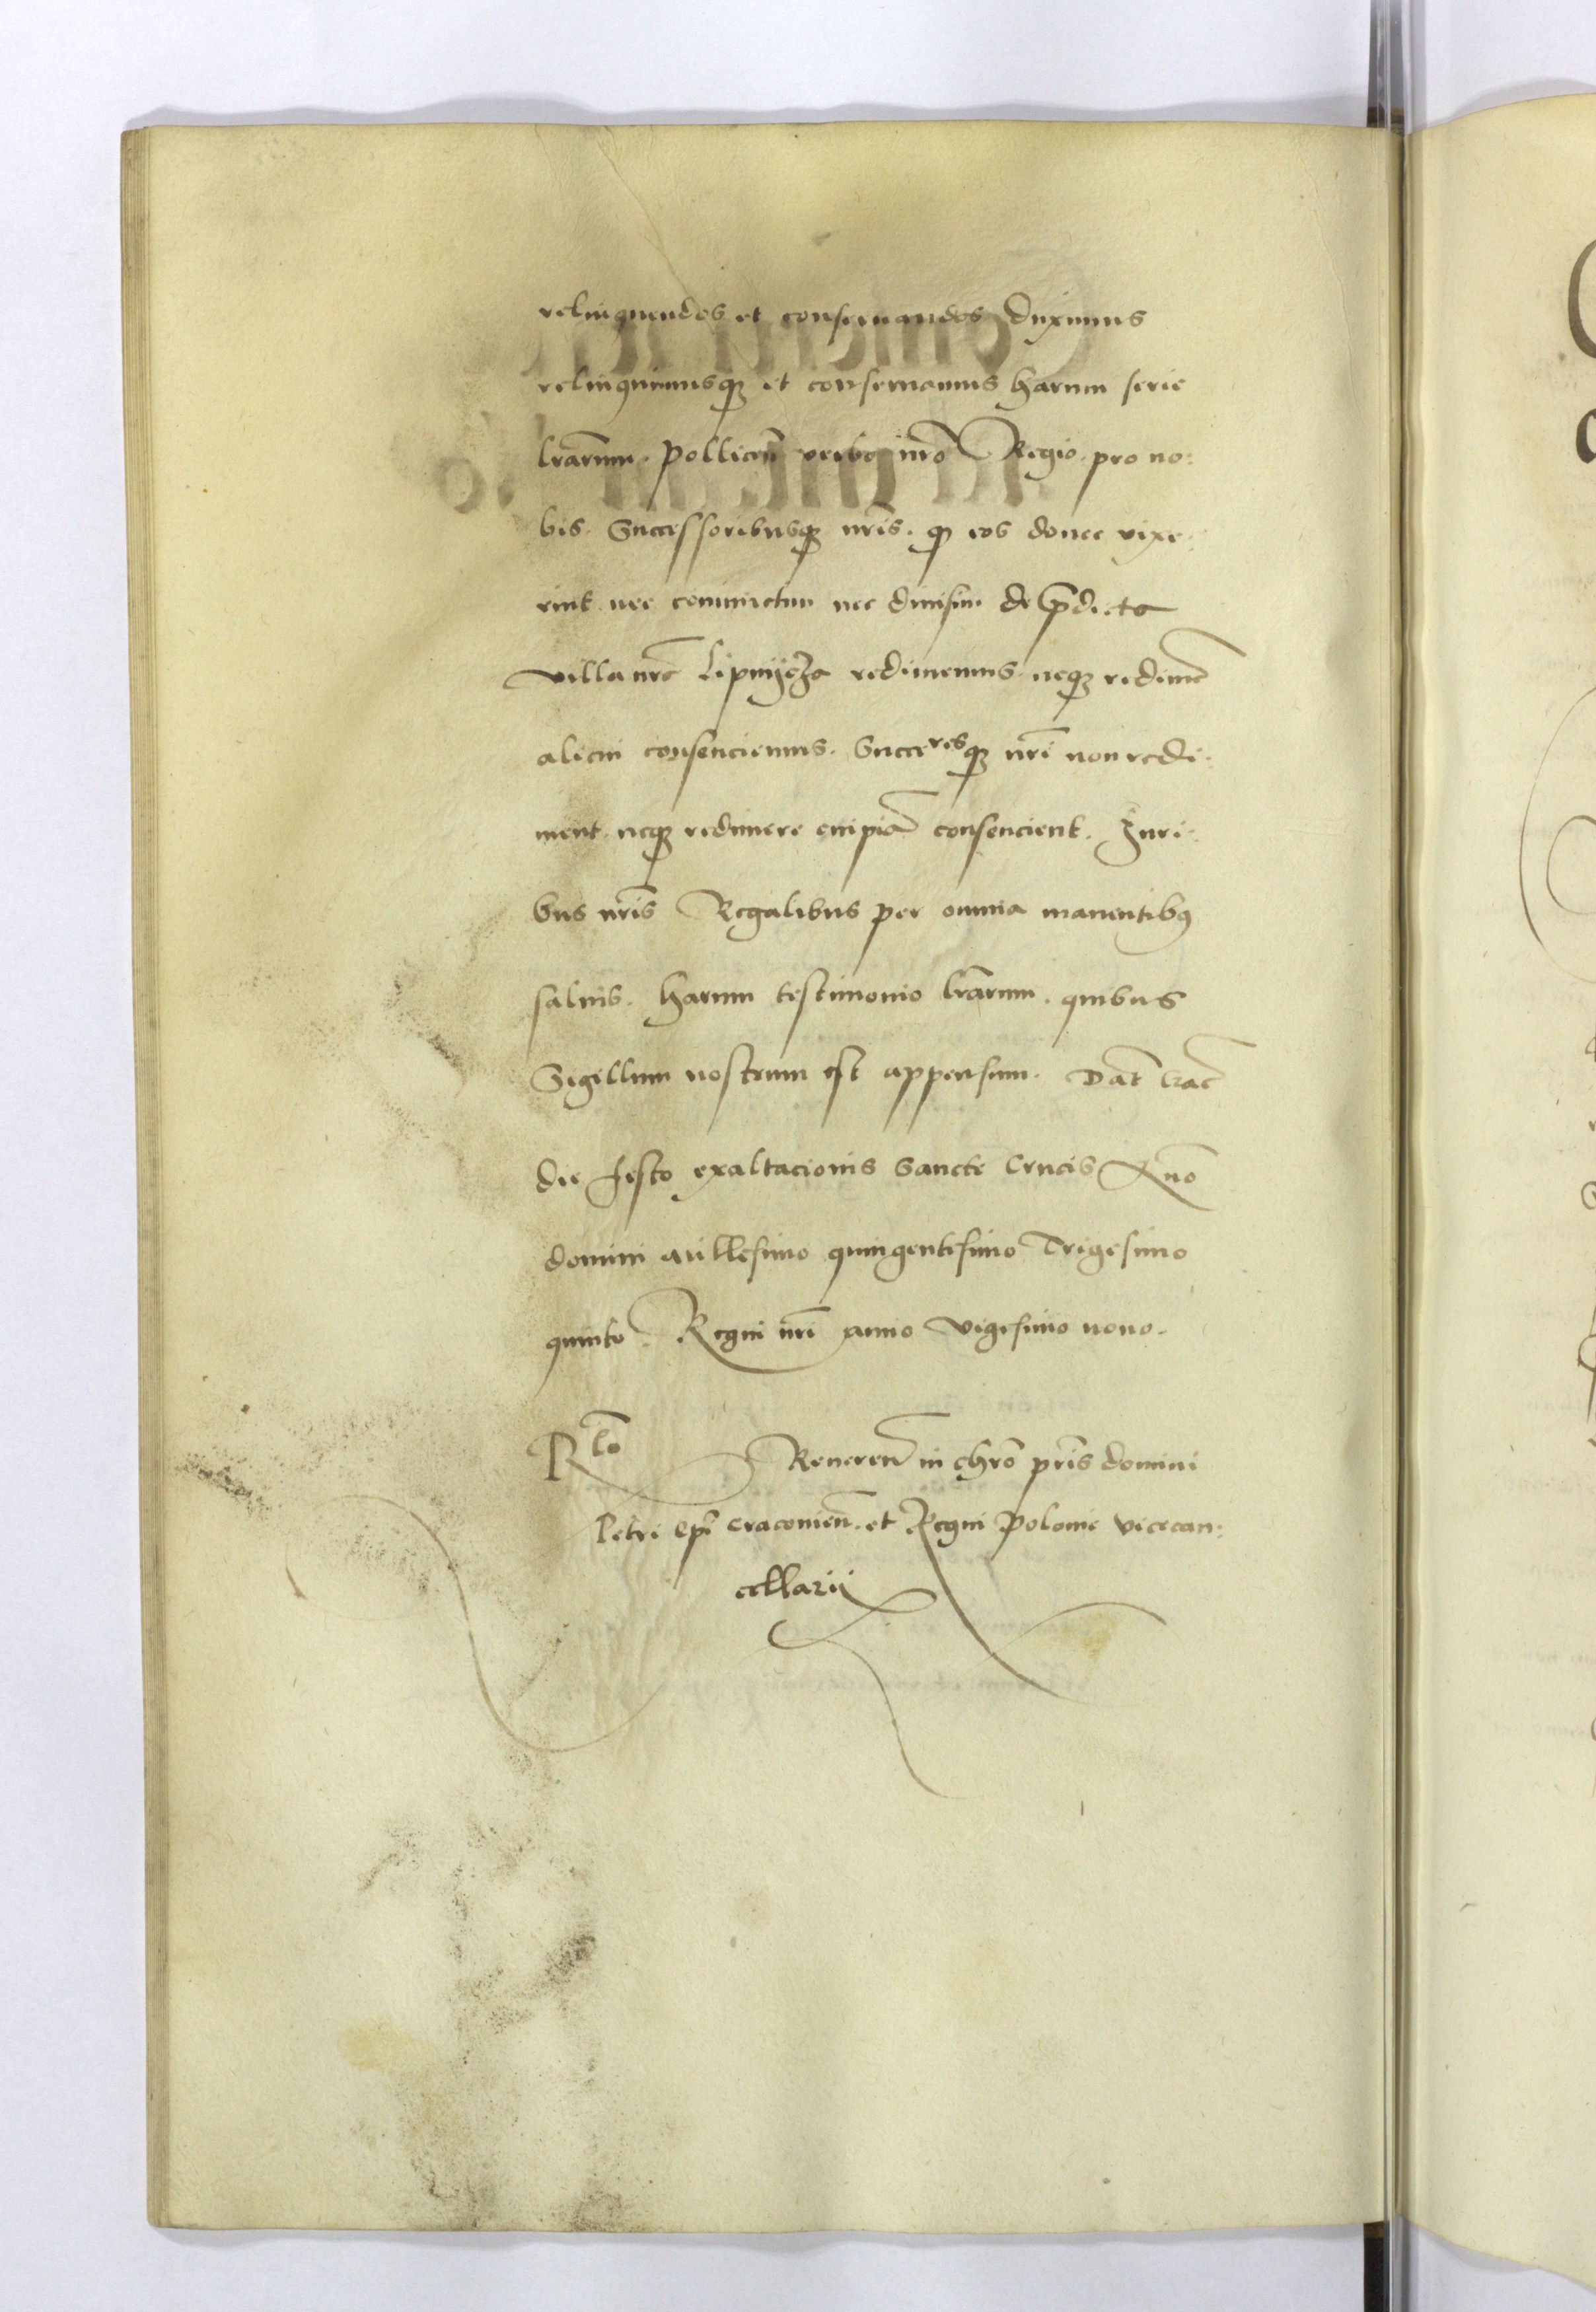 relinquendos et conseruandos duximus
relinquimusqꝫ et conseruamus harum serie
lr̄arum. pollicem̄ verbo nr̄o Regio. pro no:
bis. Successoribusqꝫ nr̄is. ꝙ eos donec vixe:
rint nec coniunctim nec diuisim de p̄dicta
villa nr̄a Lipnycza redimemus. neqꝫ redimē
alicui consenciemus. Succeresqꝫ nr̄i non redi:
ment neqꝫ redimere cuipiā consencient. Juri:
bus nr̄is Regalibus per omnia manentibꝰ
saluis. harum testimonio lr̄arum. quibus
Sigillum nostrum est appensum. Dat̄ Crac̄
die festo exaltacionis Sancte Crucis Anō
domini Millesimo quingentesimo Trigesimo
quinto. Regni nr̄i anno vigesimo nono.
Rlō Reueren̄ in chrō pr̄is domini
Petri Ep̄i Cracouien̄. et Regni Polonie vicecan:
cellarij